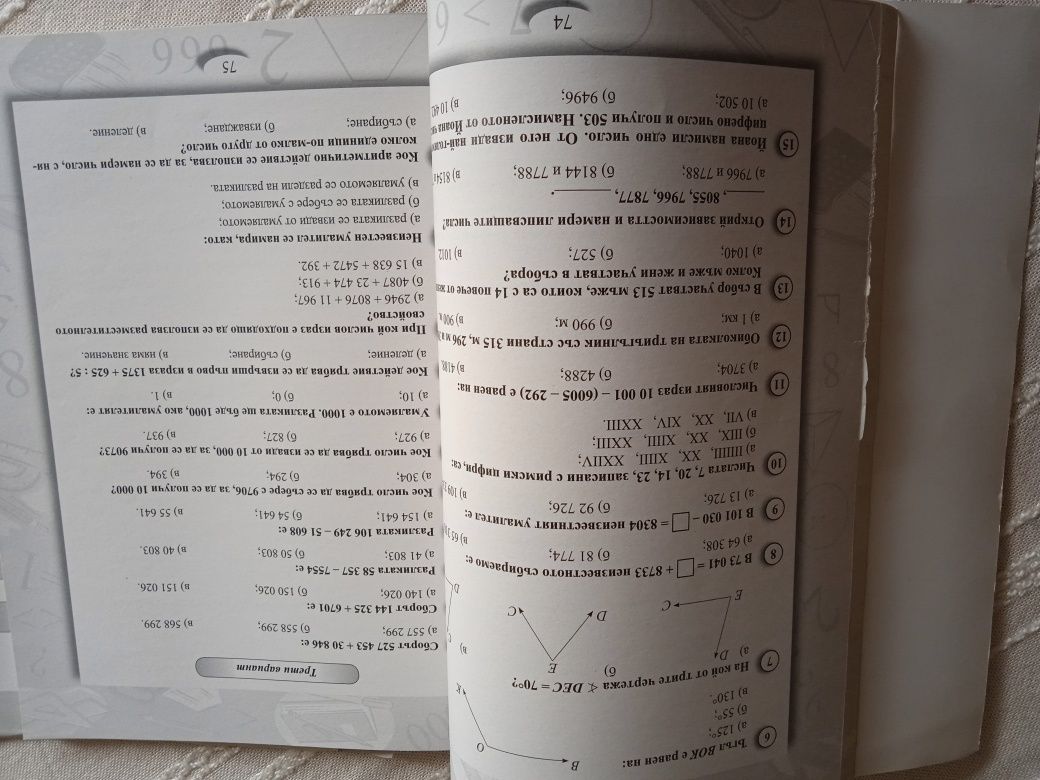 6 Ъгъл BOK е равен на:
а) 125°;
б) 55°;
в) 130°.
B
O
K
7 На кой от трите чертежа ∢ DEC = 70°?
а)
б)
в)
D
E
C
E
D
C
D
8 В 73 041 = □ + 8733 неизвестното събираемо е:
а) 64 308;
б) 81 774;
9 В 101 030 – □ = 8304 неизвестният умалител е:
а) 13 726;
б) 92 726;
10 Числата 7, 20, 14, 23, записани с римски цифри, са:
а) IIIIIII, XX, XIIII, XXIIV;
б) IIIX, XX, XIIII, XXIII;
в) VII, XX, XIV, XXIII.
11 Числовият израз 10 001 – (6005 – 292) е равен на:
а) 3704;
б) 4288;
в) 4188.
12 Обиколката на триъгълник със страни 315 м, 296 м
а) 1 км;
б) 990 м;
в) 900
13 В събор участват 513 мъже, които са с 14 повече от
Колко мъже и жени участват в събора?
а) 1040;
б) 527;
в) 1012
14 Открий зависимостта и намери липсващите числа:
______, 8055, 7966, 7877, ______.
а) 7966 и 7788;
б) 8144 и 7788;
в) 8154
15 Йоана намисли едно число. От него извади
цифрено число и получи 503. Намисленото от Йоана
а) 10 502;
б) 9496;
в) 10 402
74
Трети вариант
Сборът 527 453 + 30 846 е:
а) 557 299;
б) 558 299;
в) 568 299.
Сборът 144 325 + 6701 е:
а) 140 026;
б) 150 026;
в) 151 026.
Разликата 58 357 – 7554 е:
а) 41 803;
б) 50 803;
в) 40 803.
Разликата 106 249 – 51 608 е:
а) 154 641;
б) 54 641;
в) 55 641.
Кое число трябва да се събере с 9706, за да се получи 10 000?
а) 304;
б) 294;
в) 394.
Кое число трябва да се извади от 10 000, за да се получи 9073?
а) 927;
б) 827;
в) 937.
Умаляемото е 1000. Разликата ще бъде 1000, ако умалителят е:
а) 10;
б) 0;
в) 1.
Кое действие трябва да се извърши първо в израза 1375 + 625 : 5?
а) деление;
б) събиране;
в) няма значение.
При кой числов израз е подходящо да се използва разместителното
свойство?
а) 2946 + 8076 + 11 967;
б) 4087 + 23 474 + 913;
в) 15 638 + 5472 + 392.
Неизвестен умалител се намира, като:
а) разликата се извади от умаляемото;
б) разликата се събере с умаляемото;
в) умаляемото се раздели на разликата.
Кое аритметично действие се използва, за да се намери число, с ня-
колко единици по-малко от друго число?
а) събиране;
б) изваждане;
в) деление.
75